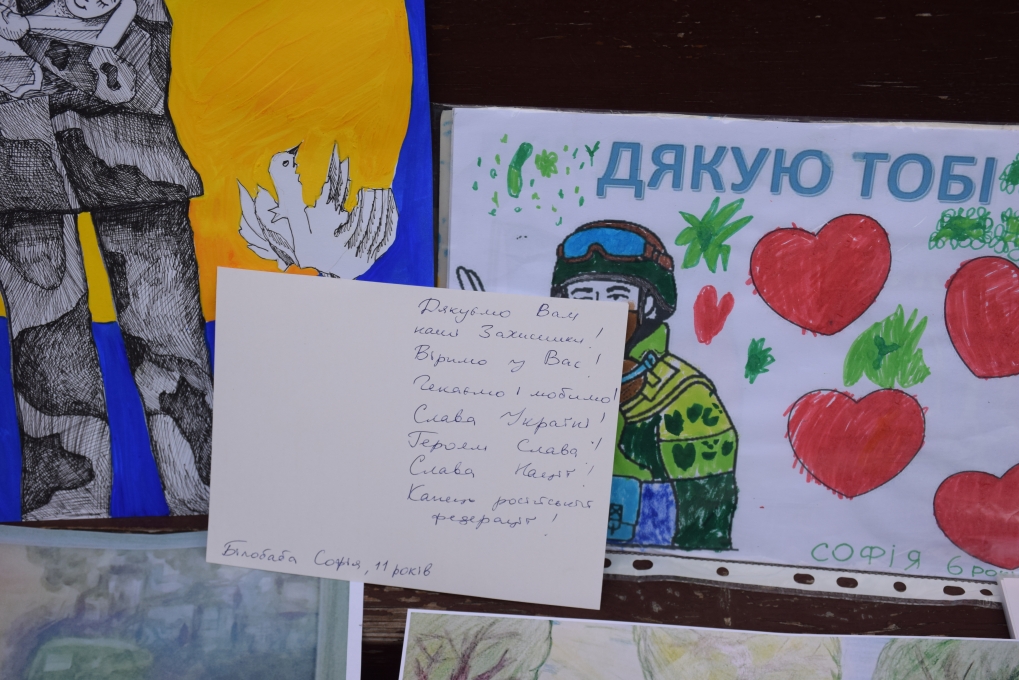 ДЯКУЮ ТОБІ
Дякуємо Вам
наші Захисники!
Віримо у Вас!
Чекаємо і любимо!
Слава Україні!
Героям Слава!
Слава Нації!
Капець російській
федерації!
Білобаба Софія, 11 років
СОФІЯ 6